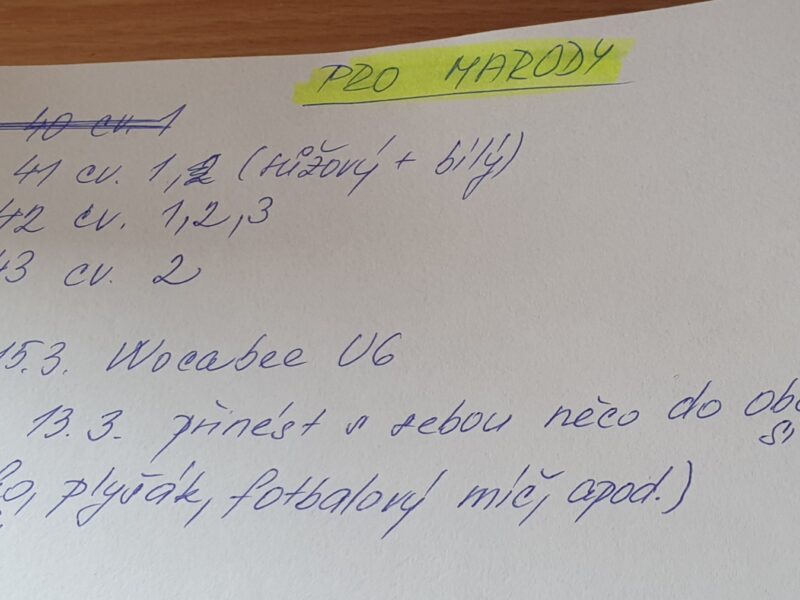 PRO MARODY
40 cv. 1
41 cv. 1, 2 (růžový + bílý)
42 cv. 1, 2, 3
43 cv. 2
15.3. Wocabee U6
13.3. přinést s sebou něco do
plyšák, fotbalový míč, apod.)